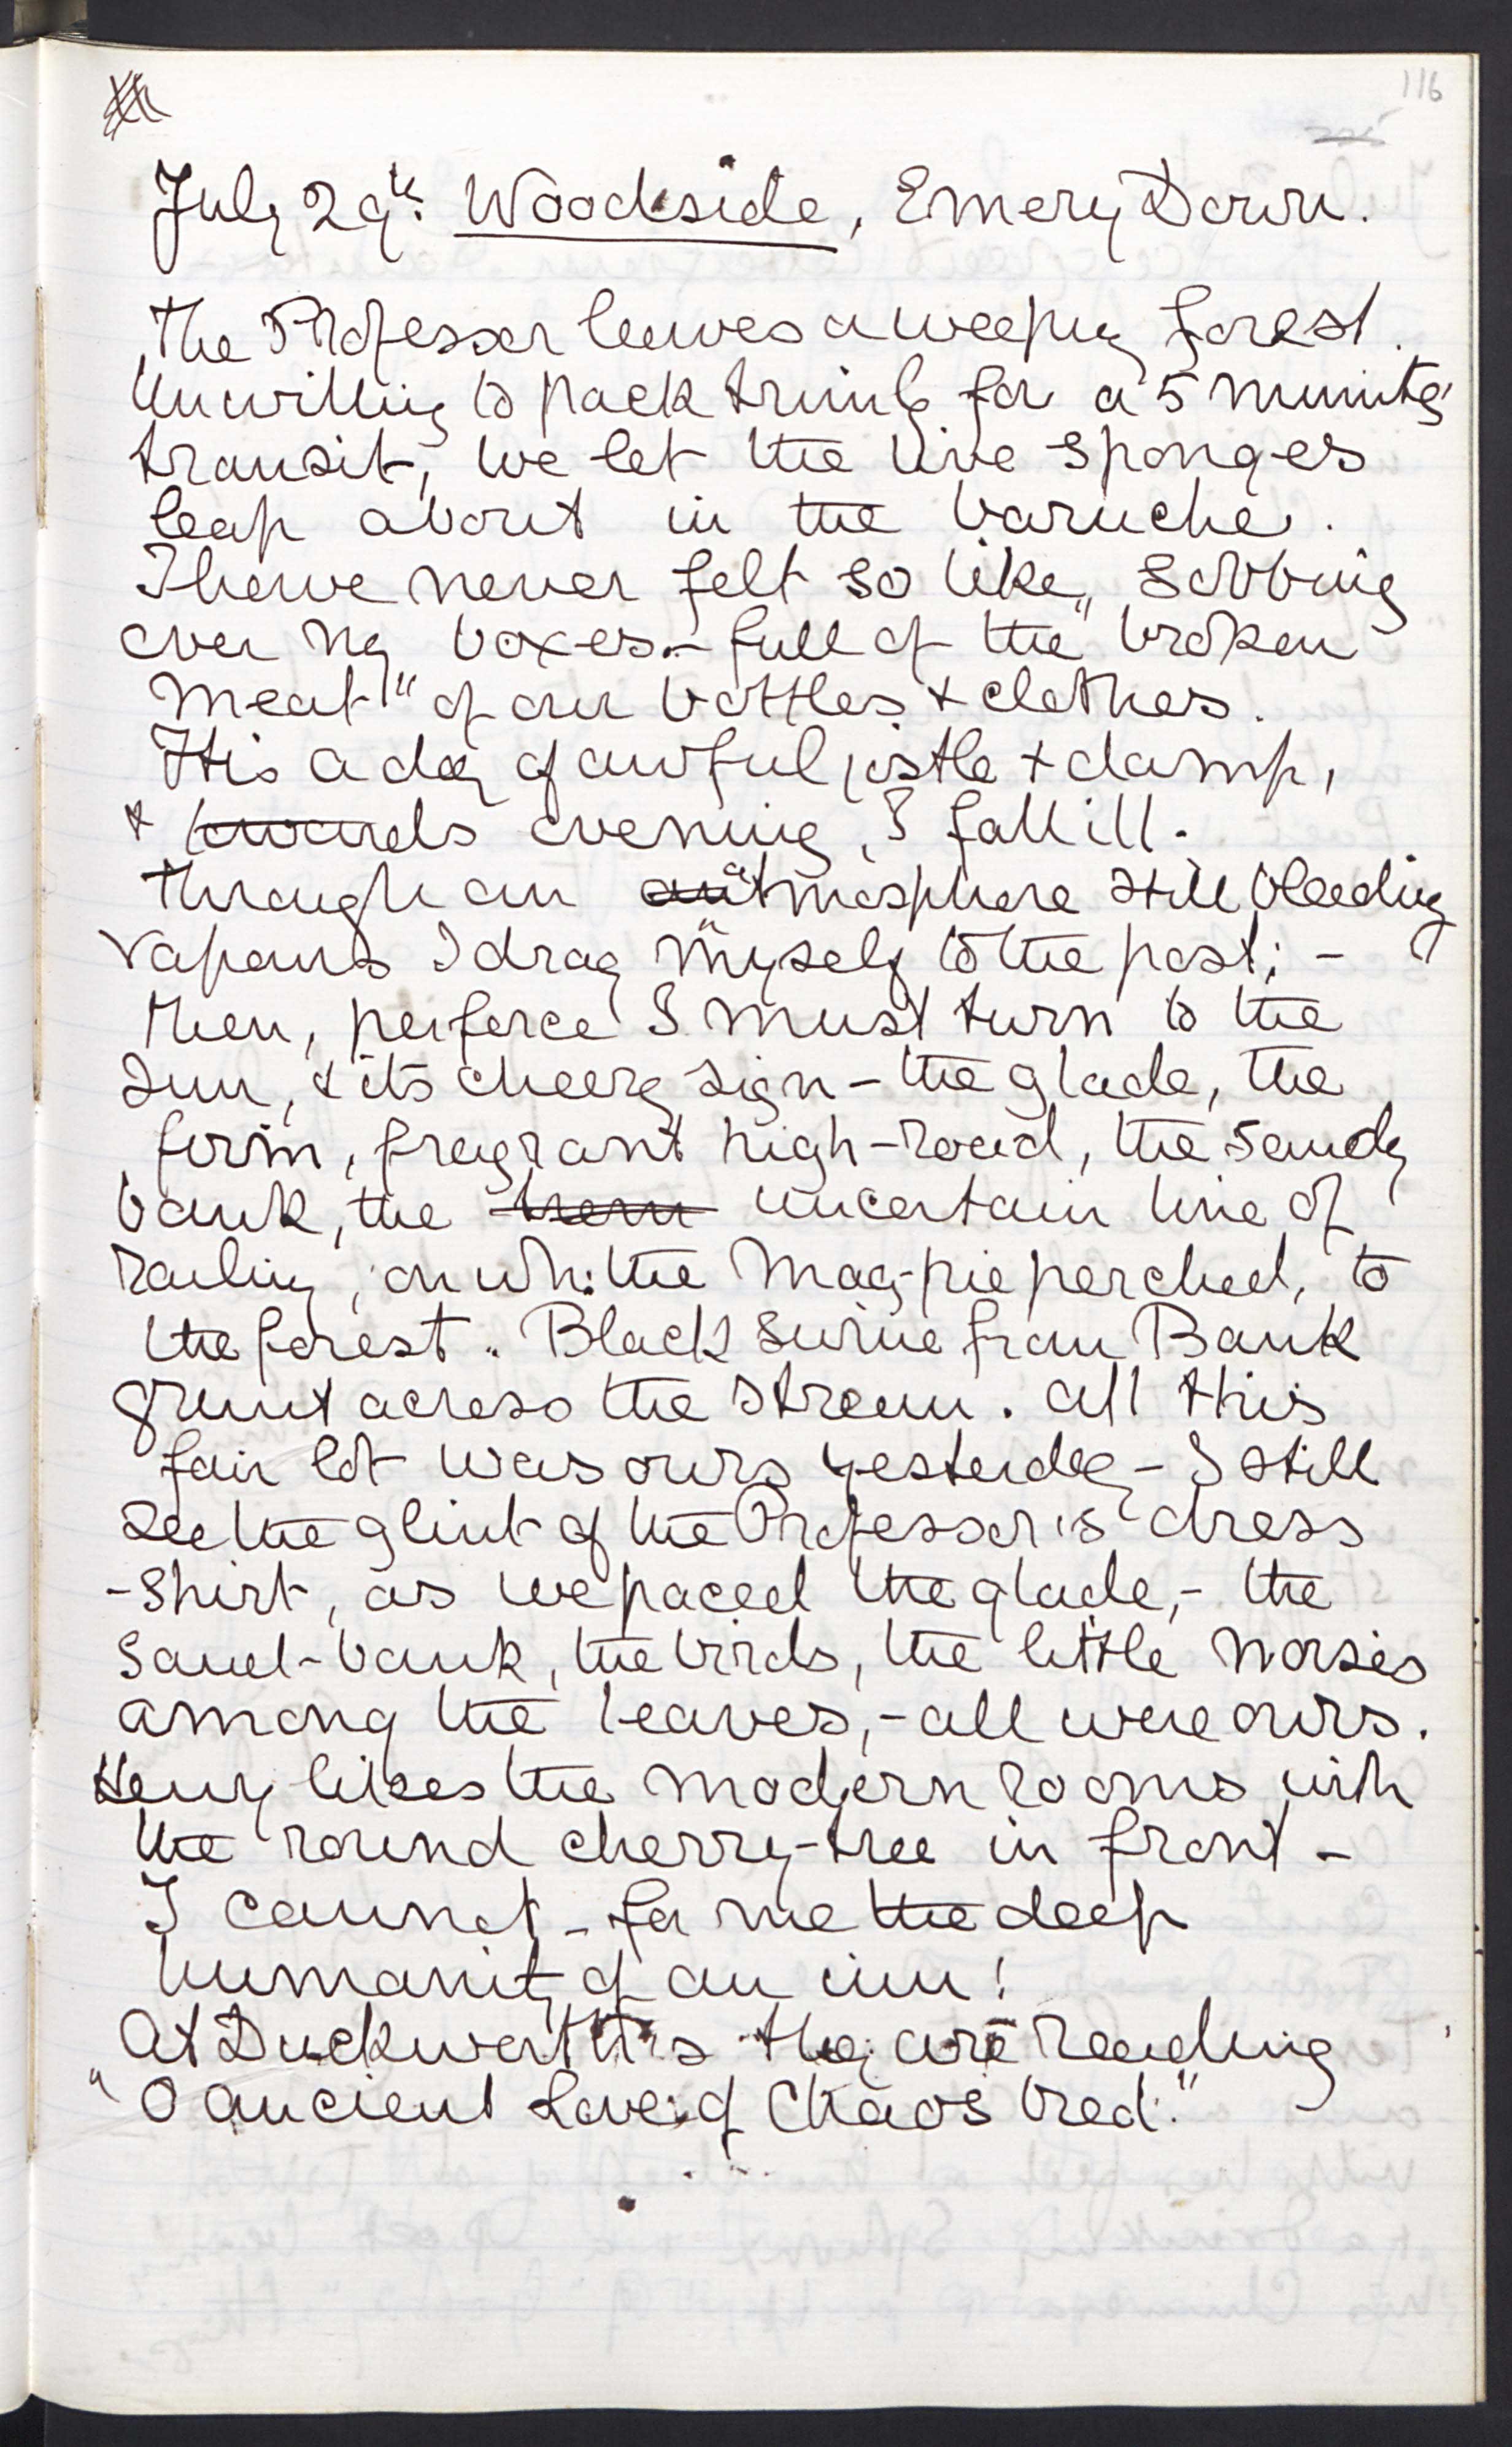 116
July 29th. Woodside, Emery Down.
The Professor leaves a weeping forest.
Unwilling to pack trimly for a 5 minutes'
transit, we let the live sponges
leap about in the barouche.
I have never felt so like "sobbing
over my boxes - full of the "broken
meat" of our bottles & clothes.
It is a day of awful jostle & damp,
& towards evening, I fall ill.
Through an atmosphere still bleeding
vapours I drag myself to the post; -
then, perforce I must turn to the
Sun, & its cheery sign - the glade, the
firm, fragrant high-road, the sandy
bank, the uncertain line of
railing, on wh: the Mag-pie perched, to
the forest. Black swine from Bank
grunt across the stream. All this
fair lot was ours yesterday - I still
see the glint of the Professor's dress
-shirt, as we paced the glade, - the
sand-bank, the birds, the little noises
among the leaves, - all were ours.
Henry likes the modern rooms with
the round cherry-tree in front -
I cannot - for me the deep
humanity of an inn!
At Duckworth's they are reading
"O ancient Love of Chaos bred."